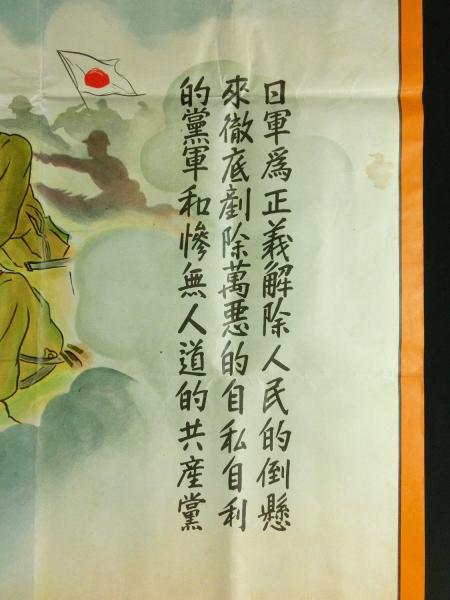 日軍爲正義解除人民的倒懸
來徹底剷除萬惡的自私自利
的黨軍和慘無人道的共產黨